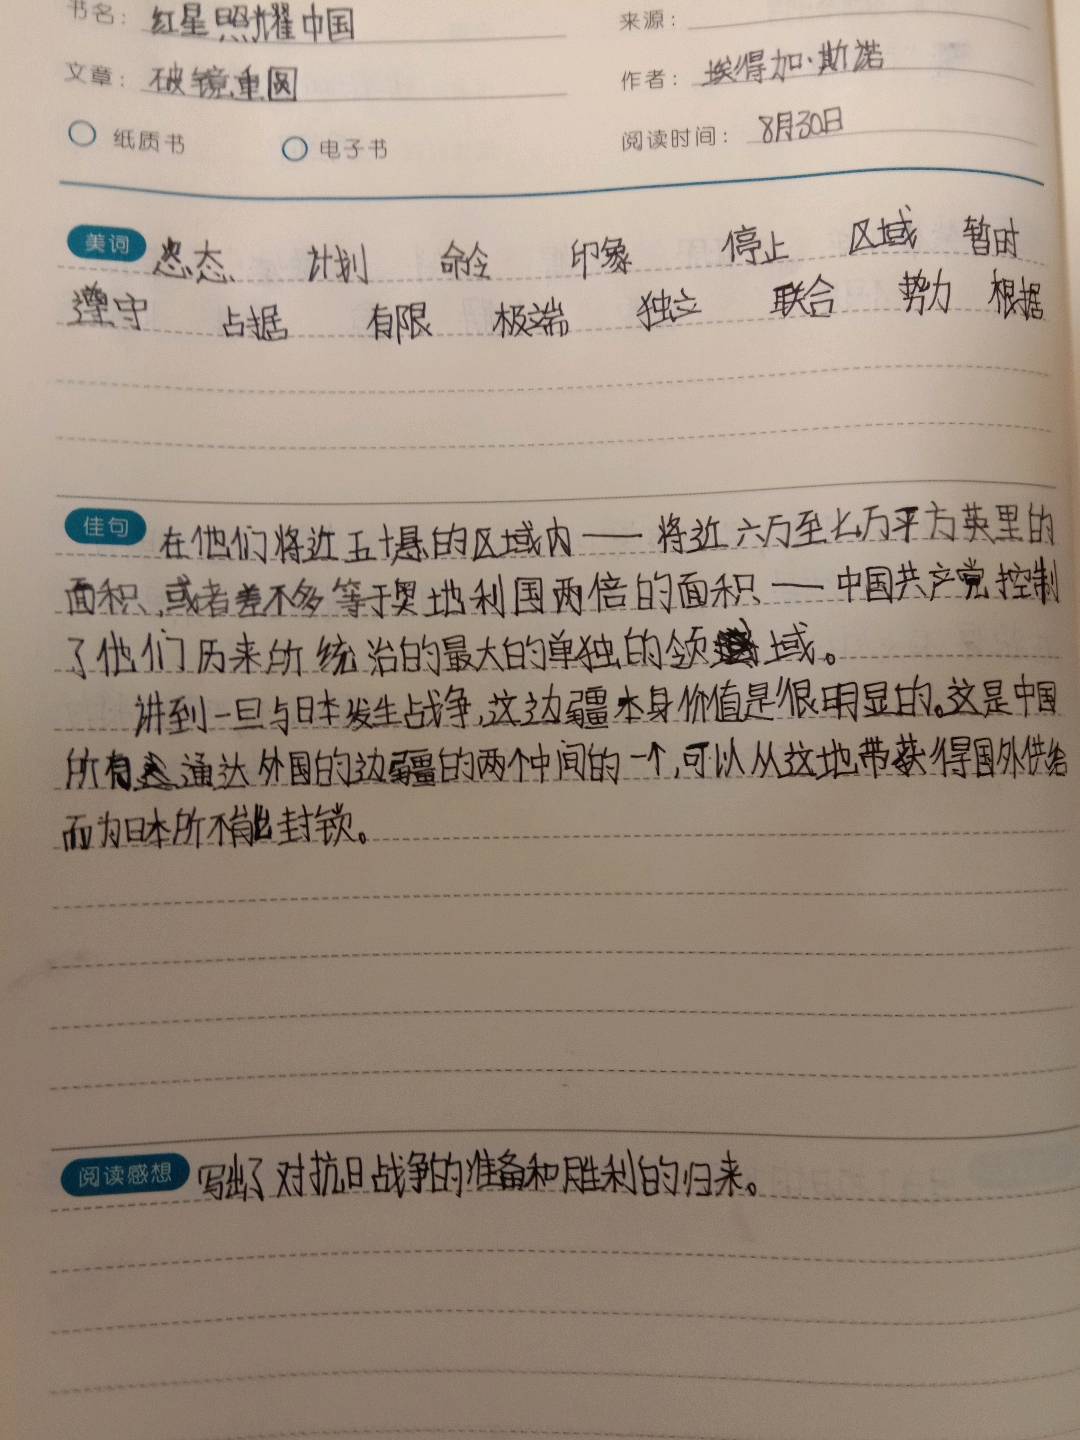 书名: 红星照耀中国 来源:
文章: 破镜重圆 作者: 埃得加·斯诺
纸质书 电子书 阅读时间: 8月30日
美词 态 计划 命令 印象 停止 区域 暂时
遵守 占据 有限 极端 独立 联合 势力 根据
佳句 在他们将近五十县的区域内——将近六万至七万平方英里的
面积,或者差不多等于奥地利国两倍的面积——中国共产党控制
了他们历来所统治的最大的单独的领域。
讲到一旦与日本发生战争,这边疆本身价值是很明显的。这是中国
所有通达外国的边疆的两个中间的一个,可以从这地带获得国外供给
而为日本所不能封锁。
阅读感想 写出了对抗日战争的准备和胜利的归来。